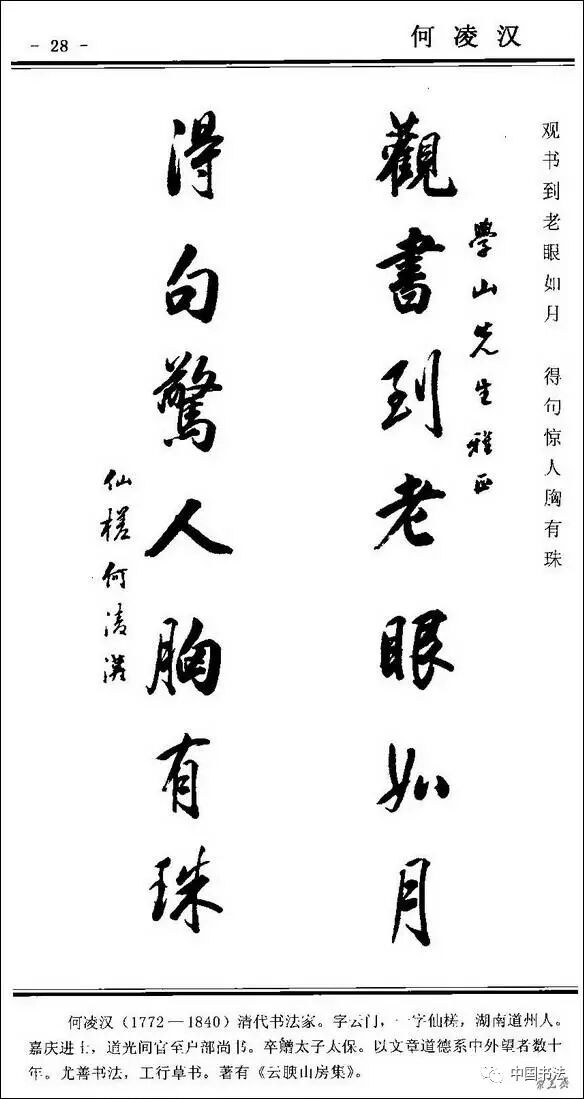 - 28 -
何凌汉
观书到老眼如月　得句惊人胸有珠
學山先生雅正
觀書到老眼如月
得句驚人胸有珠
仙槎何淩漢
何凌汉（1772—1840）清代书法家。字云门，一字仙槎，湖南道州人。
嘉庆进士，道光间官至户部尚书。卒赠太子太保。以文章道德系中外望者数十
年。尤善书法，工行草书。著有《云映山房集》。
中国书法